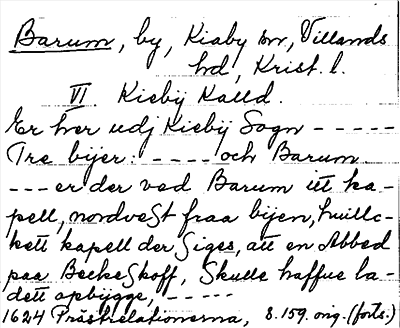 Barum, by, Kiaby sn, Villands
hd, Krist. l.
VI Kiebÿ Kalld.
Er her udj Kiebÿ Sogn - - - - -
Tre bijer: - - - - och Barum
- - - er der ved Barum itt ka-
pell, nordveSt fraa bijen, huilc-
kett kapell der Siges, att en Abbed
paa BeckeSkoff, Skulle haffue la-
dett opbÿgge, - - - - -
1624 Prästrelationerna, s. 159. orig. (forts.)